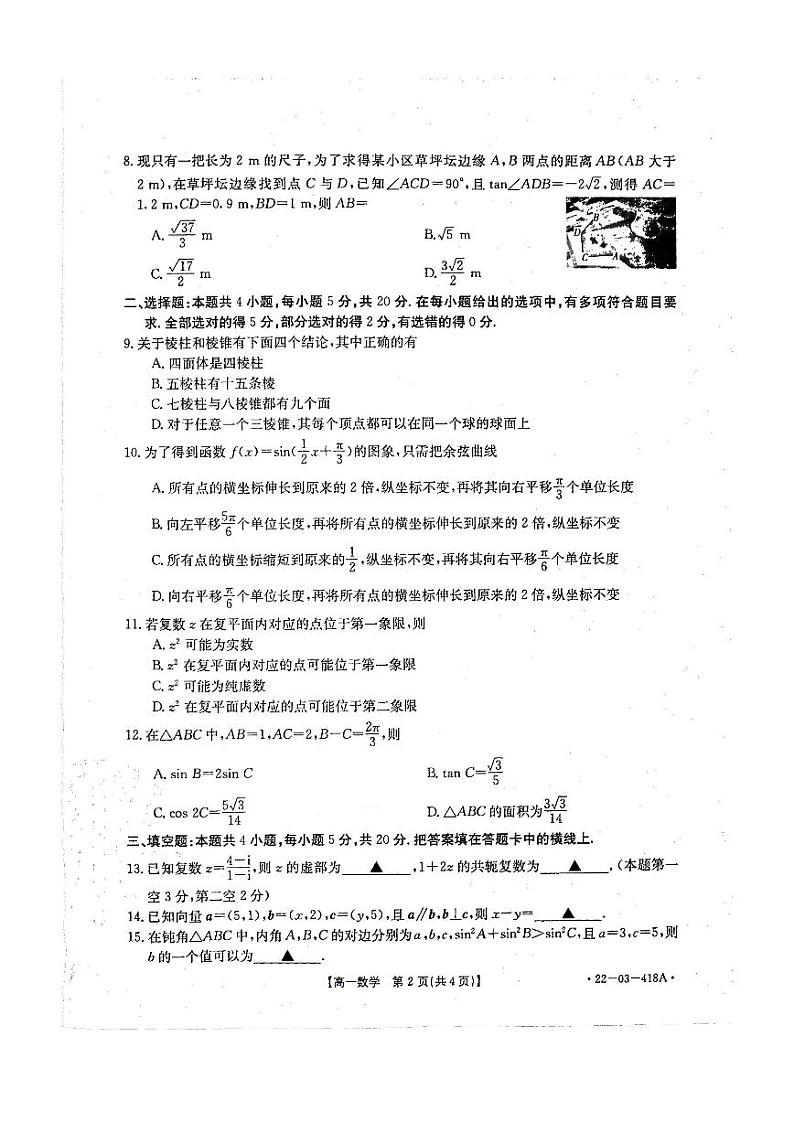 8. 现只有一把长为 2 m 的尺子,为了求得某小区草坪坛边缘 A,B 两点的距离 AB(AB 大于
2 m),在草坪坛边缘找到点 C 与 D,已知∠ACD=90°,且 tan∠ADB=-2√2,测得 AC=
1.2 m,CD=0.9 m,BD=1 m,则 AB=
A. √37/3 m B. √5 m
C. √17/2 m D. 3√2/2 m
B
D
C A
二、选择题:本题共 4 小题,每小题 5 分,共 20 分. 在每小题给出的选项中,有多项符合题目要
求. 全部选对的得 5 分,部分选对的得 2 分,有选错的得 0 分.
9. 关于棱柱和棱锥有下面四个结论,其中正确的有
A. 四面体是四棱柱
B. 五棱柱有十五条棱
C. 七棱柱与八棱锥都有九个面
D. 对于任意一个三棱锥,其每个顶点都可以在同一个球的球面上
10. 为了得到函数 f(x)=sin(1/2x+π/3)的图象,只需把余弦曲线
A. 所有点的横坐标伸长到原来的 2 倍,纵坐标不变,再将其向右平移π/3个单位长度
B. 向左平移5π/6个单位长度,再将所有点的横坐标伸长到原来的 2 倍,纵坐标不变
C. 所有点的横坐标缩短到原来的1/2,纵坐标不变,再将其向右平移π/6个单位长度
D. 向右平移π/6个单位长度,再将所有点的横坐标伸长到原来的 2 倍,纵坐标不变
11. 若复数 z 在复平面内对应的点位于第一象限,则
A. z² 可能为实数
B. z² 在复平面内对应的点可能位于第一象限
C. z² 可能为纯虚数
D. z² 在复平面内对应的点可能位于第二象限
12. 在△ABC 中,AB=1,AC=2,B-C=2π/3,则
A. sin B=2sin C B. tan C=√3/5
C. cos 2C=5√3/14 D. △ABC 的面积为3√3/14
三、填空题:本题共 4 小题,每小题 5 分,共 20 分. 把答案填在答题卡中的横线上.
13. 已知复数 z=4-i/1-i,则 z 的虚部为 ▲ ,1+2z 的共轭复数为 ▲ .(本题第一
空 3 分,第二空 2 分)
14. 已知向量 a=(5,1),b=(x,2),c=(y,5),且 a∥b,b⊥c,则 x-y= ▲ .
15. 在钝角△ABC 中,内角 A,B,C 的对边分别为a,b,c,sin²A+sin²B>sin²C,且 a=3,c=5,则
b 的一个值可以为 ▲ .
【高一数学 第 2 页(共 4 页)】 ·22-03-418A·